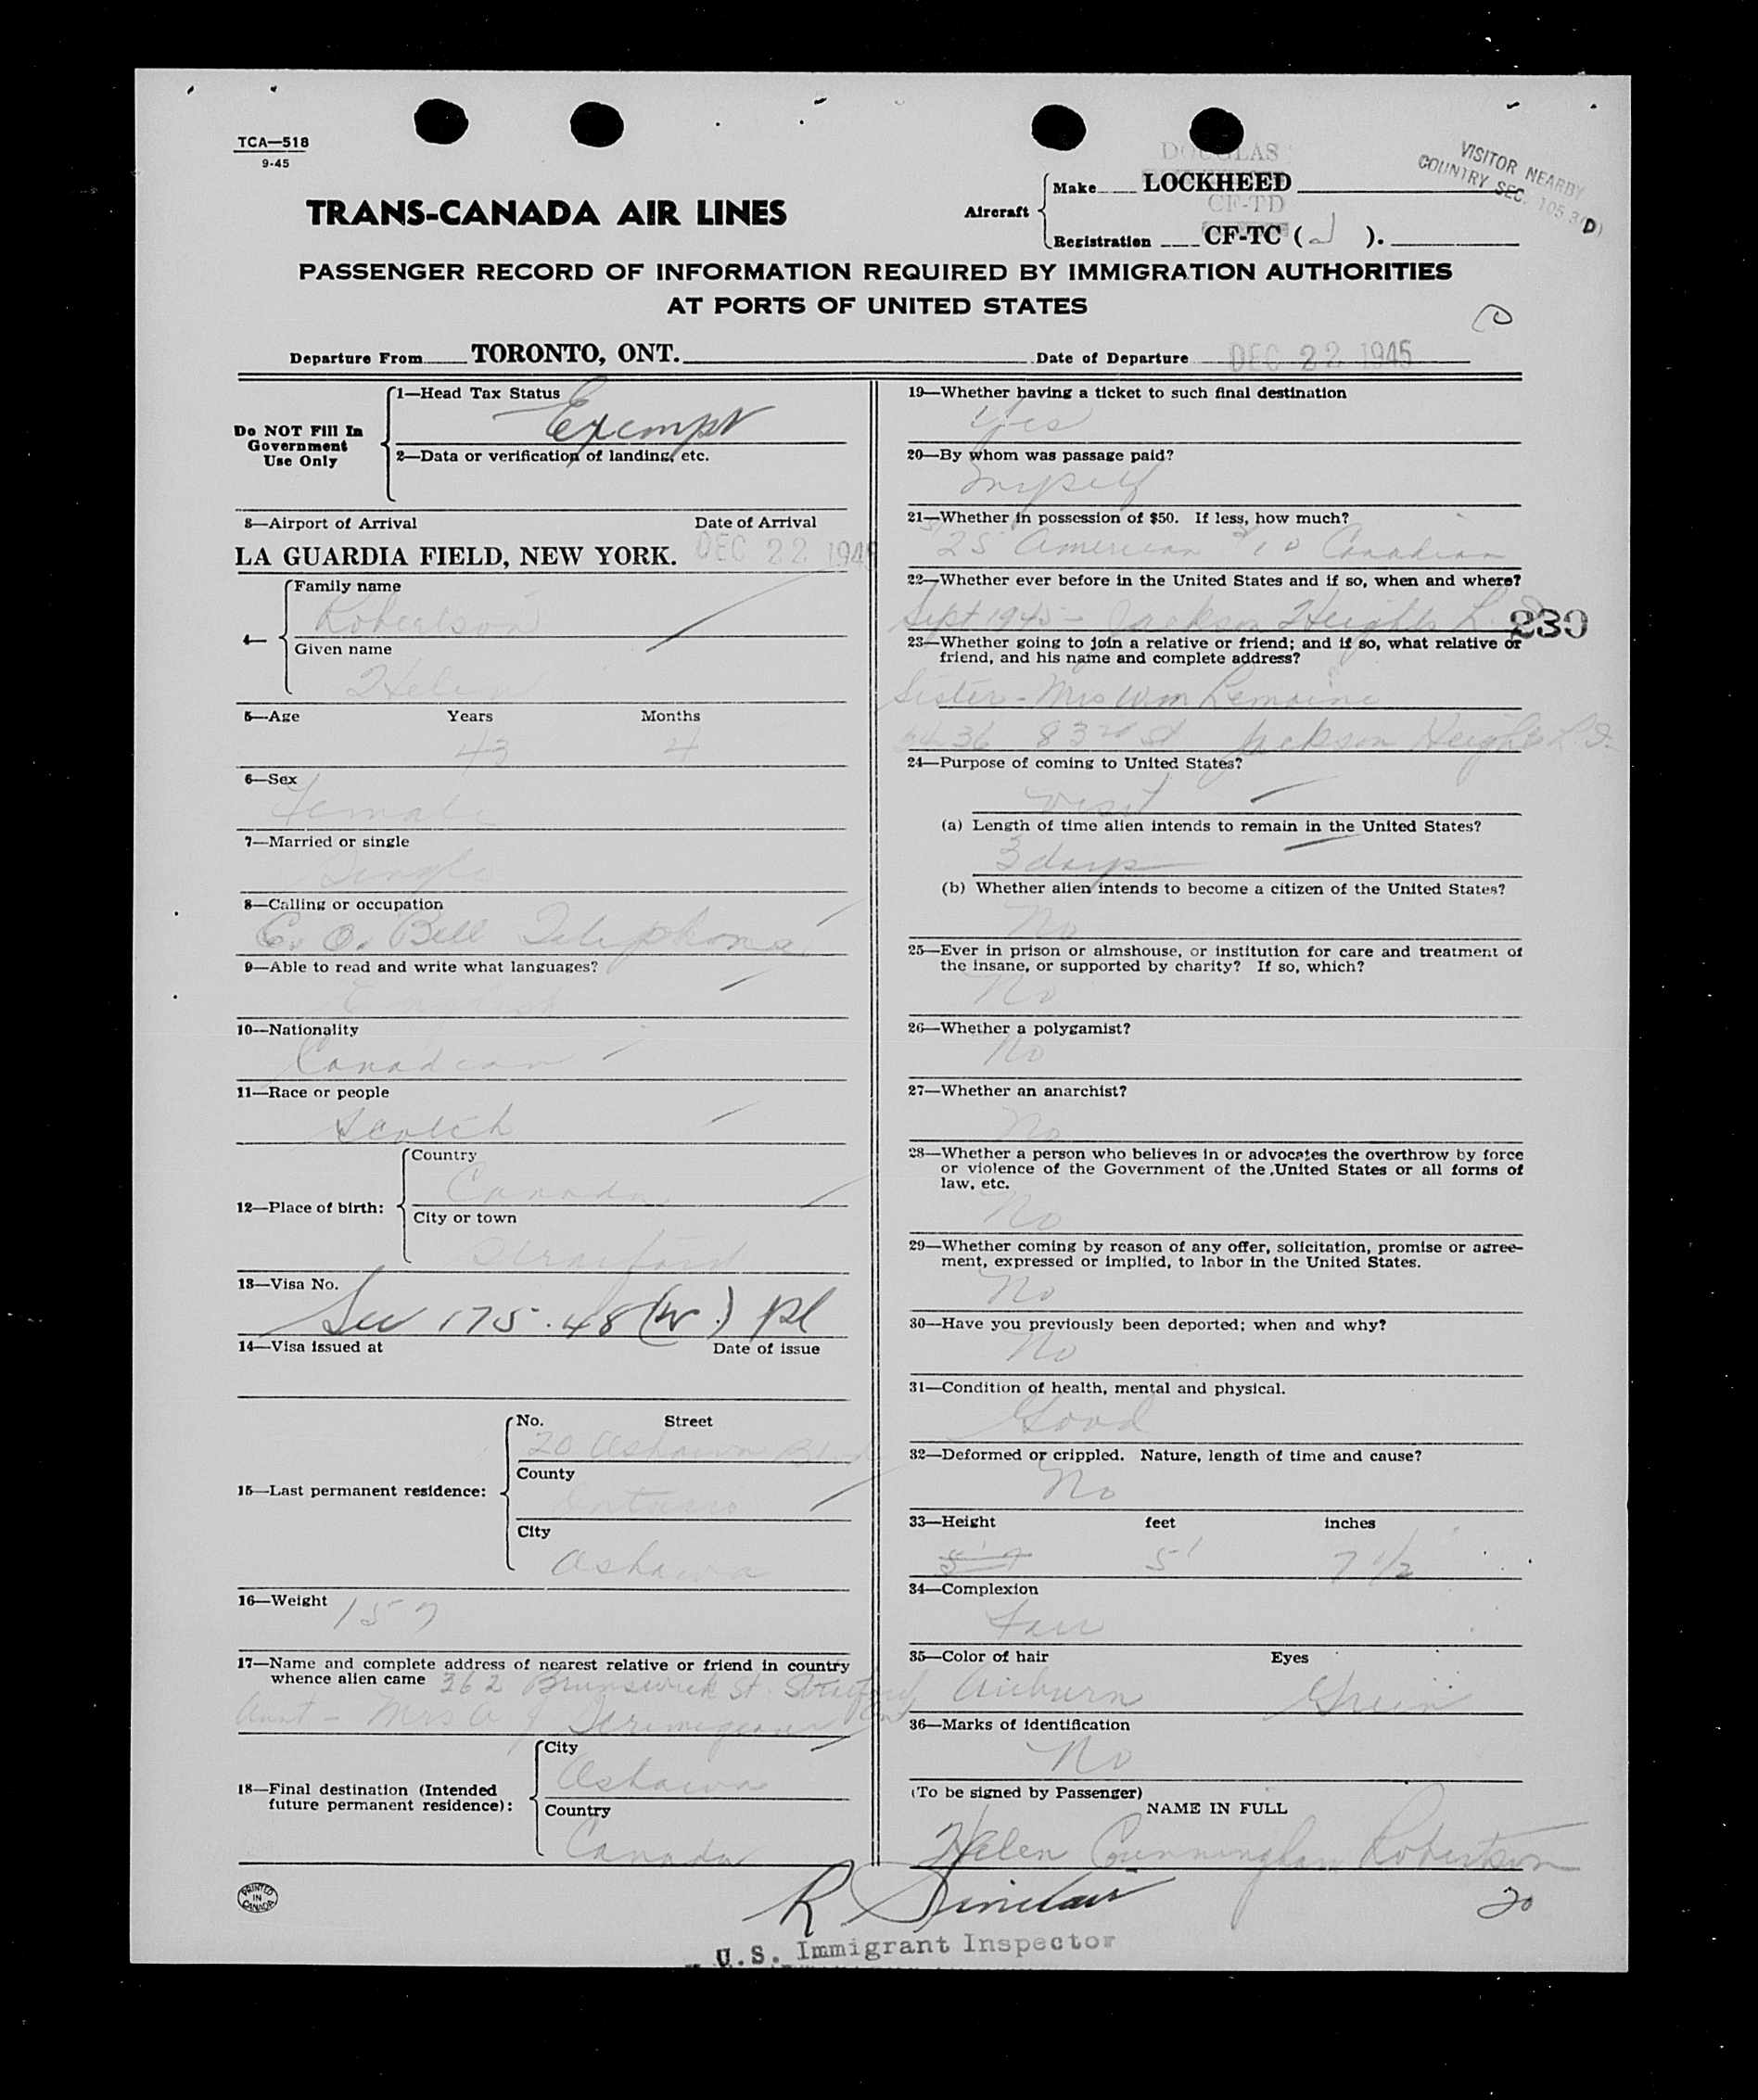 TCA—518
9-45
DOUGLAS
VISITOR NEARBY
COUNTRY SEC. 105.3(D)
Aircraft
Make LOCKHEED
CF-TD
Registration CF-TC ( J ).
TRANS-CANADA AIR LINES
PASSENGER RECORD OF INFORMATION REQUIRED BY IMMIGRATION AUTHORITIES
AT PORTS OF UNITED STATES
Departure From TORONTO, ONT. Date of Departure DEC 22 1945
Do NOT Fill In
Government
Use Only
1—Head Tax Status
Exempt
2—Data or verification of landing, etc.
8—Airport of Arrival Date of Arrival
LA GUARDIA FIELD, NEW YORK. DEC 22 1945
4—
Family name
Robertson
Given name
Helen
5—Age Years Months
43 4
6—Sex
Female
7—Married or single
Single
8—Calling or occupation
C. O. Bell Telephone
9—Able to read and write what languages?
English
10—Nationality
Canadian
11—Race or people
Scotch
12—Place of birth:
Country
Canada
City or town
Stratford
13—Visa No.
Sec 175.48 (w.) pl
14—Visa issued at Date of issue
15—Last permanent residence:
No. Street
20 Oshawa Bl
County
Ontario
City
Oshawa
16—Weight 157
17—Name and complete address of nearest relative or friend in country
whence alien came 362 Brunswick St. Stratford
Aunt - Mrs A J Ont
18—Final destination (Intended
future permanent residence):
City
Oshawa
Country
Canada
PRINTED
IN
CANADA
19—Whether having a ticket to such final destination
Yes
20—By whom was passage paid?
Myself
21—Whether in possession of $50. If less, how much?
$25 American $10 Canadian
22—Whether ever before in the United States and if so, when and where?
Sept 1945 - Jackson Heights L.
239
23—Whether going to join a relative or friend; and if so, what relative or
friend, and his name and complete address?
Sister - Mrs Wm Lemoine
3436 83rd St Jackson Heights L.I.
24—Purpose of coming to United States?
Visit
(a) Length of time alien intends to remain in the United States?
3 days
(b) Whether alien intends to become a citizen of the United States?
No
25—Ever in prison or almshouse, or institution for care and treatment of
the insane, or supported by charity? If so, which?
No
26—Whether a polygamist?
No
27—Whether an anarchist?
No
28—Whether a person who believes in or advocates the overthrow by force
or violence of the Government of the United States or all forms of
law, etc.
No
29—Whether coming by reason of any offer, solicitation, promise or agree-
ment, expressed or implied, to labor in the United States.
No
30—Have you previously been deported; when and why?
No
31—Condition of health, mental and physical.
Good
32—Deformed or crippled. Nature, length of time and cause?
No
33—Height feet inches
5' 7 5' 7 1/2
34—Complexion
Fair
35—Color of hair Eyes
Auburn Green
36—Marks of identification
No
(To be signed by Passenger)
NAME IN FULL
Helen Cunningham Robertson
R Sinclair
20
U.S. Immigrant Inspector